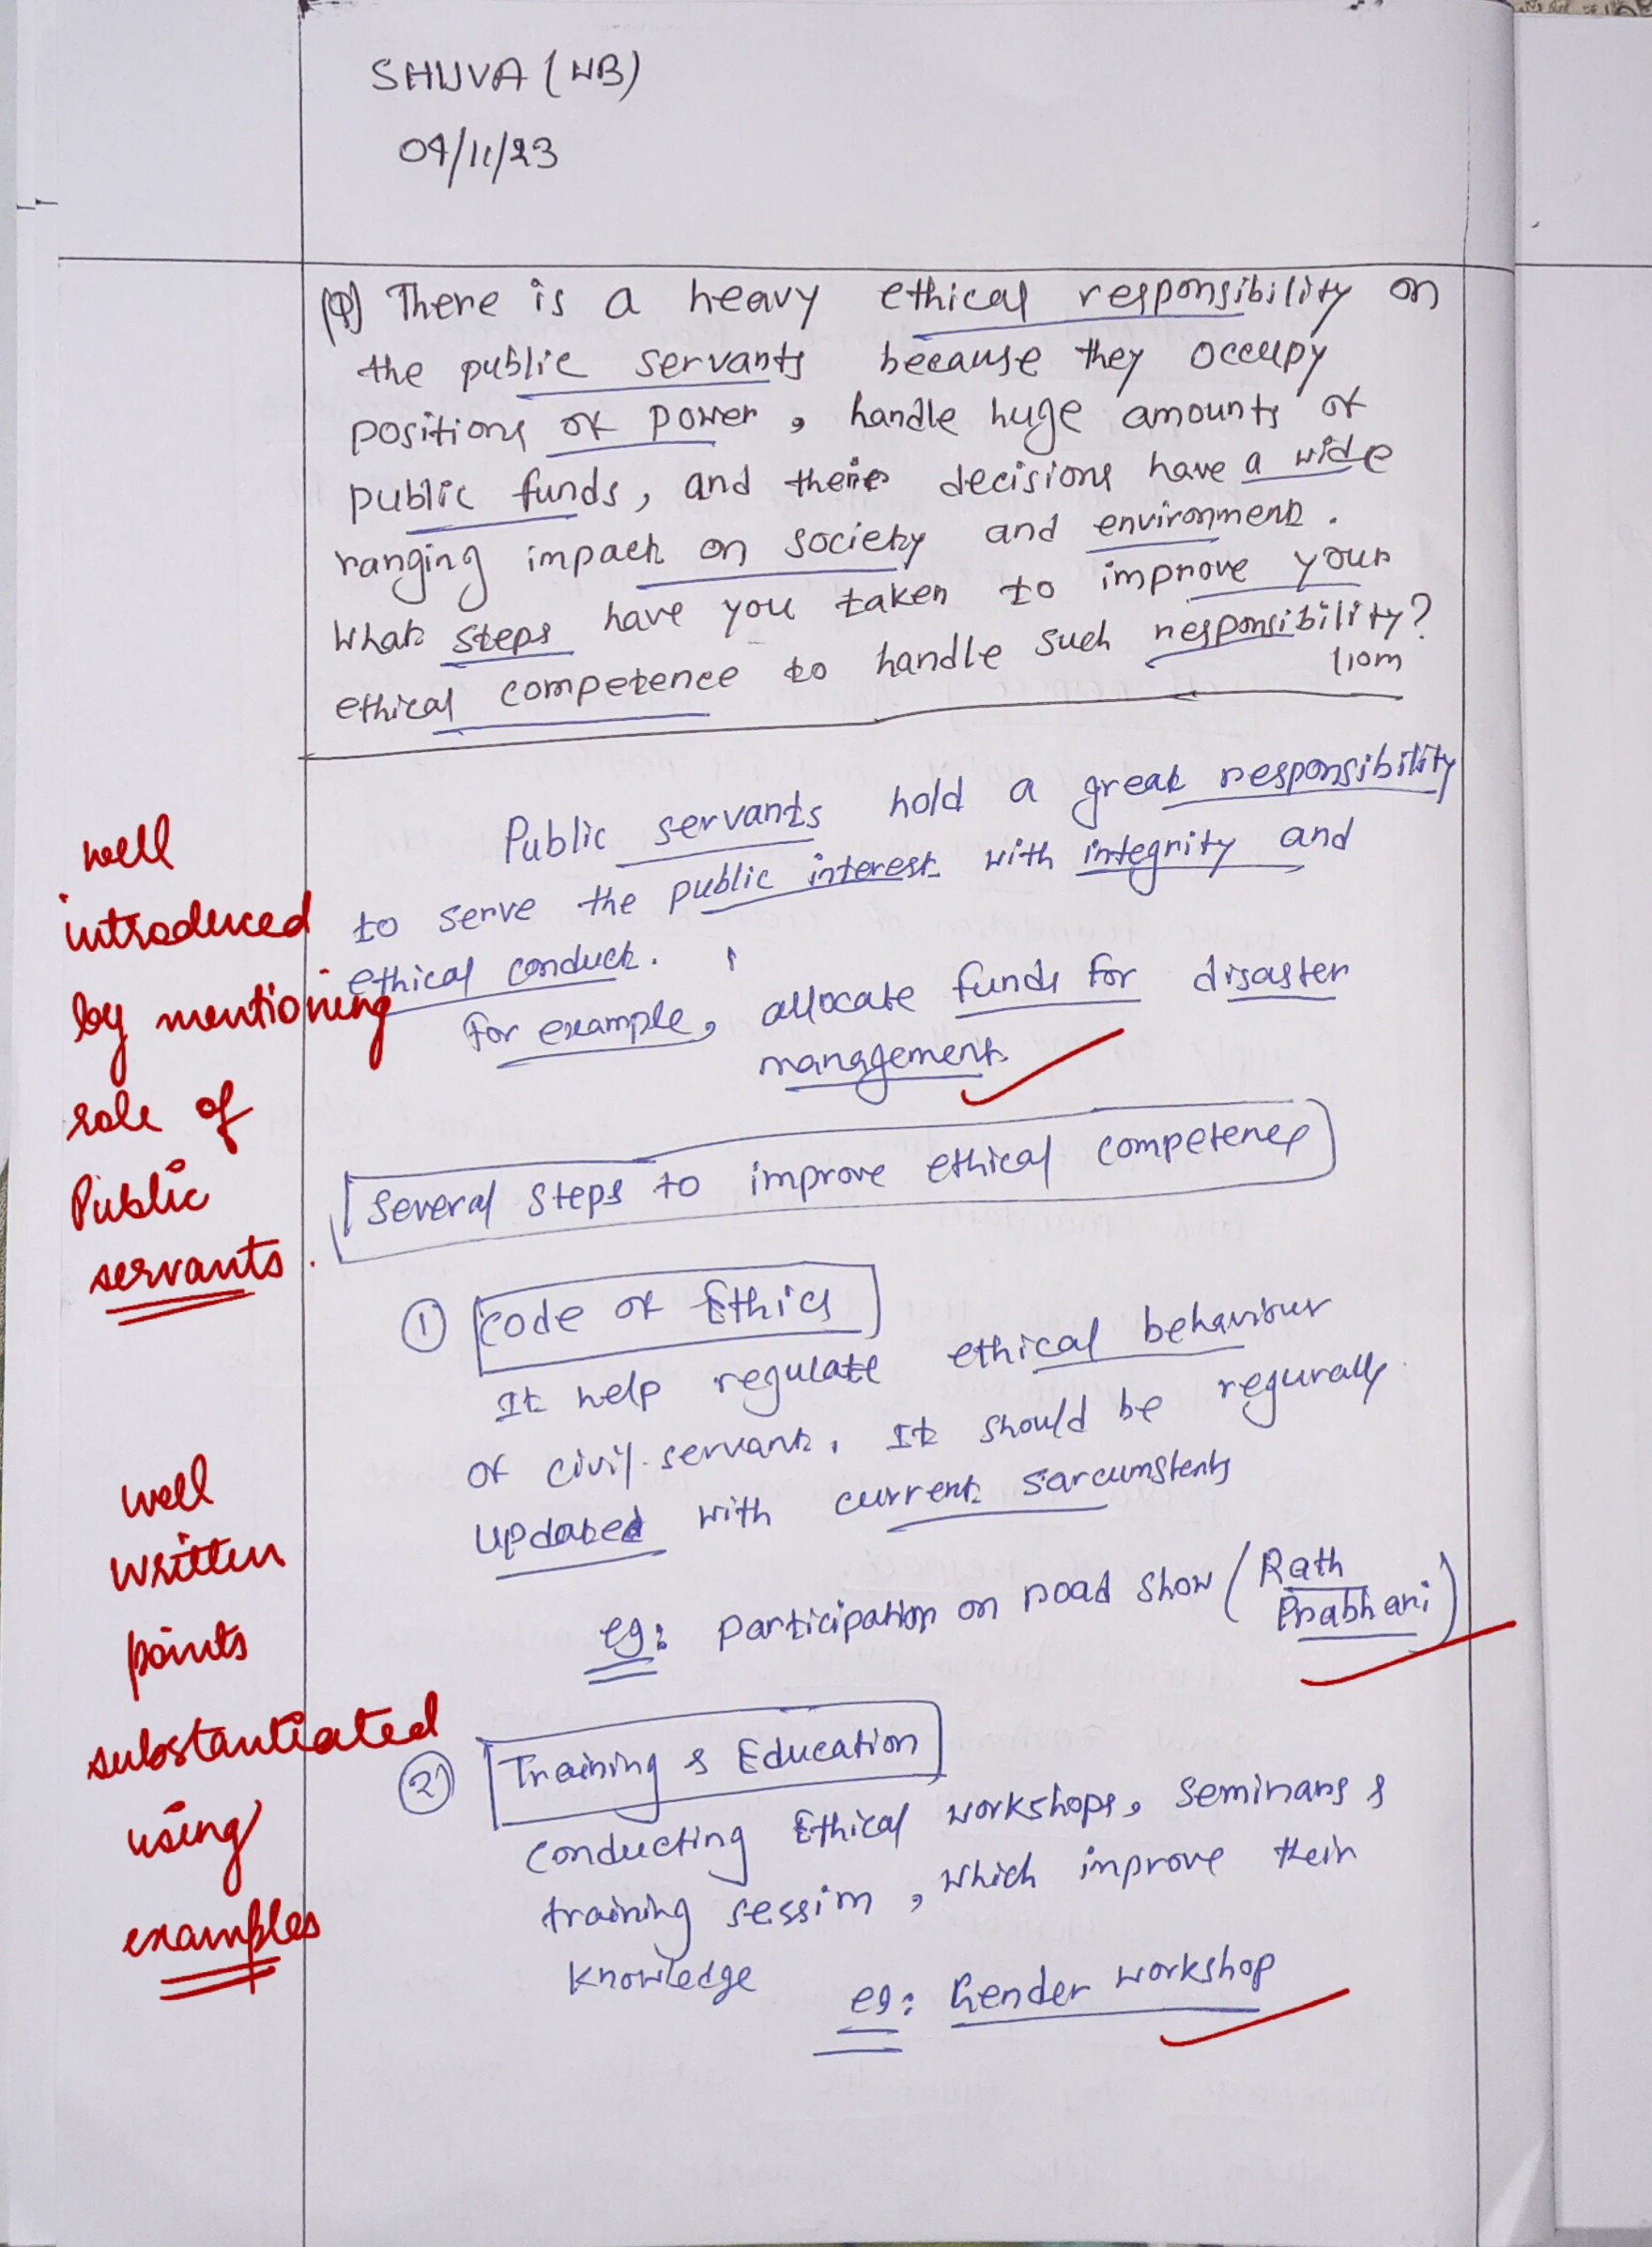 SHUVA (WB)
04/11/23
(Q) There is a heavy ethical responsibility on
the public servants because they occupy
positions of power, handle huge amounts of
public funds, and their decisions have a wide
ranging impact on society and environment.
What steps have you taken to improve your
ethical competence to handle such responsibility?
(10m
Public servants hold a great responsibility
to serve the public interest with integrity and
ethical conduct.
For example, allocate funds for disaster
management
well
introduced
by mentioning
role of
Public
servants.
Several Steps to improve ethical competence
① Code of Ethics
It help regulate ethical behaviour
of civil servant. It should be regurally
updated with current sarcumstents
eg: participation on road show (Rath
Prabhari)
well
written
points
substantiated
using
examples
② Training & Education
Conducting Ethical workshops, Seminars &
training session, which improve their
knowledge
eg: Gender workshop